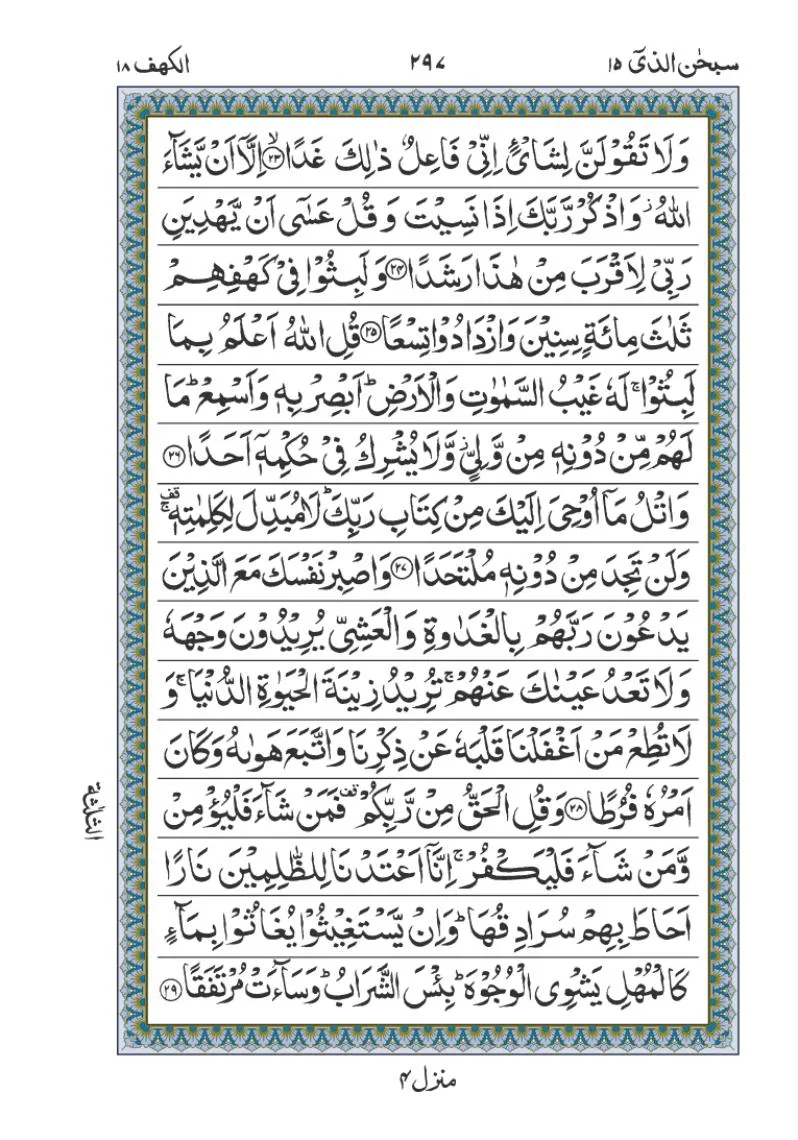 سبحٰن الذیۤ ۱۵
۲۹۷
الکهف ۱۸
وَلَا تَقُوْلَنَّ لِشَایْءٍ اِنِّیْ فَاعِلٌ ذٰلِكَ غَدًاۙ۝۲۳ اِلَّاۤ اَنْ یَّشَآءَ
اللّٰهُ٘ وَاذْكُرْ رَّبَّكَ اِذَا نَسِیْتَ وَ قُلْ عَسٰۤی اَنْ یَّهْدِیَنِ
رَبِّیْ لِاَقْرَبَ مِنْ هٰذَا رَشَدًا۝۲۴ وَ لَبِثُوْا فِیْ كَهْفِهِمْ
ثَلٰثَ مِائَةٍ سِنِیْنَ وَازْدَادُوْا تِسْعًا۝۲۵ قُلِ اللّٰهُ اَعْلَمُ بِمَا
لَبِثُوْاۚ لَهٗ غَیْبُ السَّمٰوٰتِ وَالْاَرْضِؕ اَبْصِرْ بِهٖ وَاَسْمِعْؕ مَا
لَهُمْ مِّنْ دُوْنِهٖ مِنْ وَّلِیٍّ٘ وَّلَا یُشْرِكُ فِیْ حُكْمِهٖۤ اَحَدًا۝۲۶
وَاتْلُ مَاۤ اُوْحِیَ اِلَیْكَ مِنْ كِتَابِ رَبِّكَؕ لَا مُبَدِّلَ لِكَلِمٰتِهٖ ۚ۫
وَلَنْ تَجِدَ مِنْ دُوْنِهٖ مُلْتَحَدًا۝۲۷ وَاصْبِرْ نَفْسَكَ مَعَ الَّذِیْنَ
یَدْعُوْنَ رَبَّهُمْ بِالْغَدٰوةِ وَالْعَشِیِّ یُرِیْدُوْنَ وَجْهَهٗ
وَلَا تَعْدُ عَیْنٰكَ عَنْهُمْۚ تُرِیْدُ زِیْنَةَ الْحَیٰوةِ الدُّنْیَاۚ وَ
لَا تُطِعْ مَنْ اَغْفَلْنَا قَلْبَهٗ عَنْ ذِكْرِنَا وَاتَّبَعَ هَوٰىهُ وَكَانَ
اَمْرُهٗ فُرُطًا۝۲۸ وَقُلِ الْحَقُّ مِنْ رَّبِّكُمْ۫ فَمَنْ شَآءَ فَلْیُؤْمِنْ
وَّمَنْ شَآءَ فَلْیَكْفُرْۚ اِنَّاۤ اَعْتَدْنَا لِلظّٰلِمِیْنَ نَارًا
اَحَاطَ بِهِمْ سُرَادِقُهَاؕ وَاِنْ یَّسْتَغِیْثُوْا یُغَاثُوْا بِمَآءٍ
كَالْمُهْلِ یَشْوِی الْوُجُوْهَؕ بِئْسَ الشَّرَابُؕ وَسَآءَتْ مُرْتَفَقًا۝۲۹
الثلثة
منزل ۴